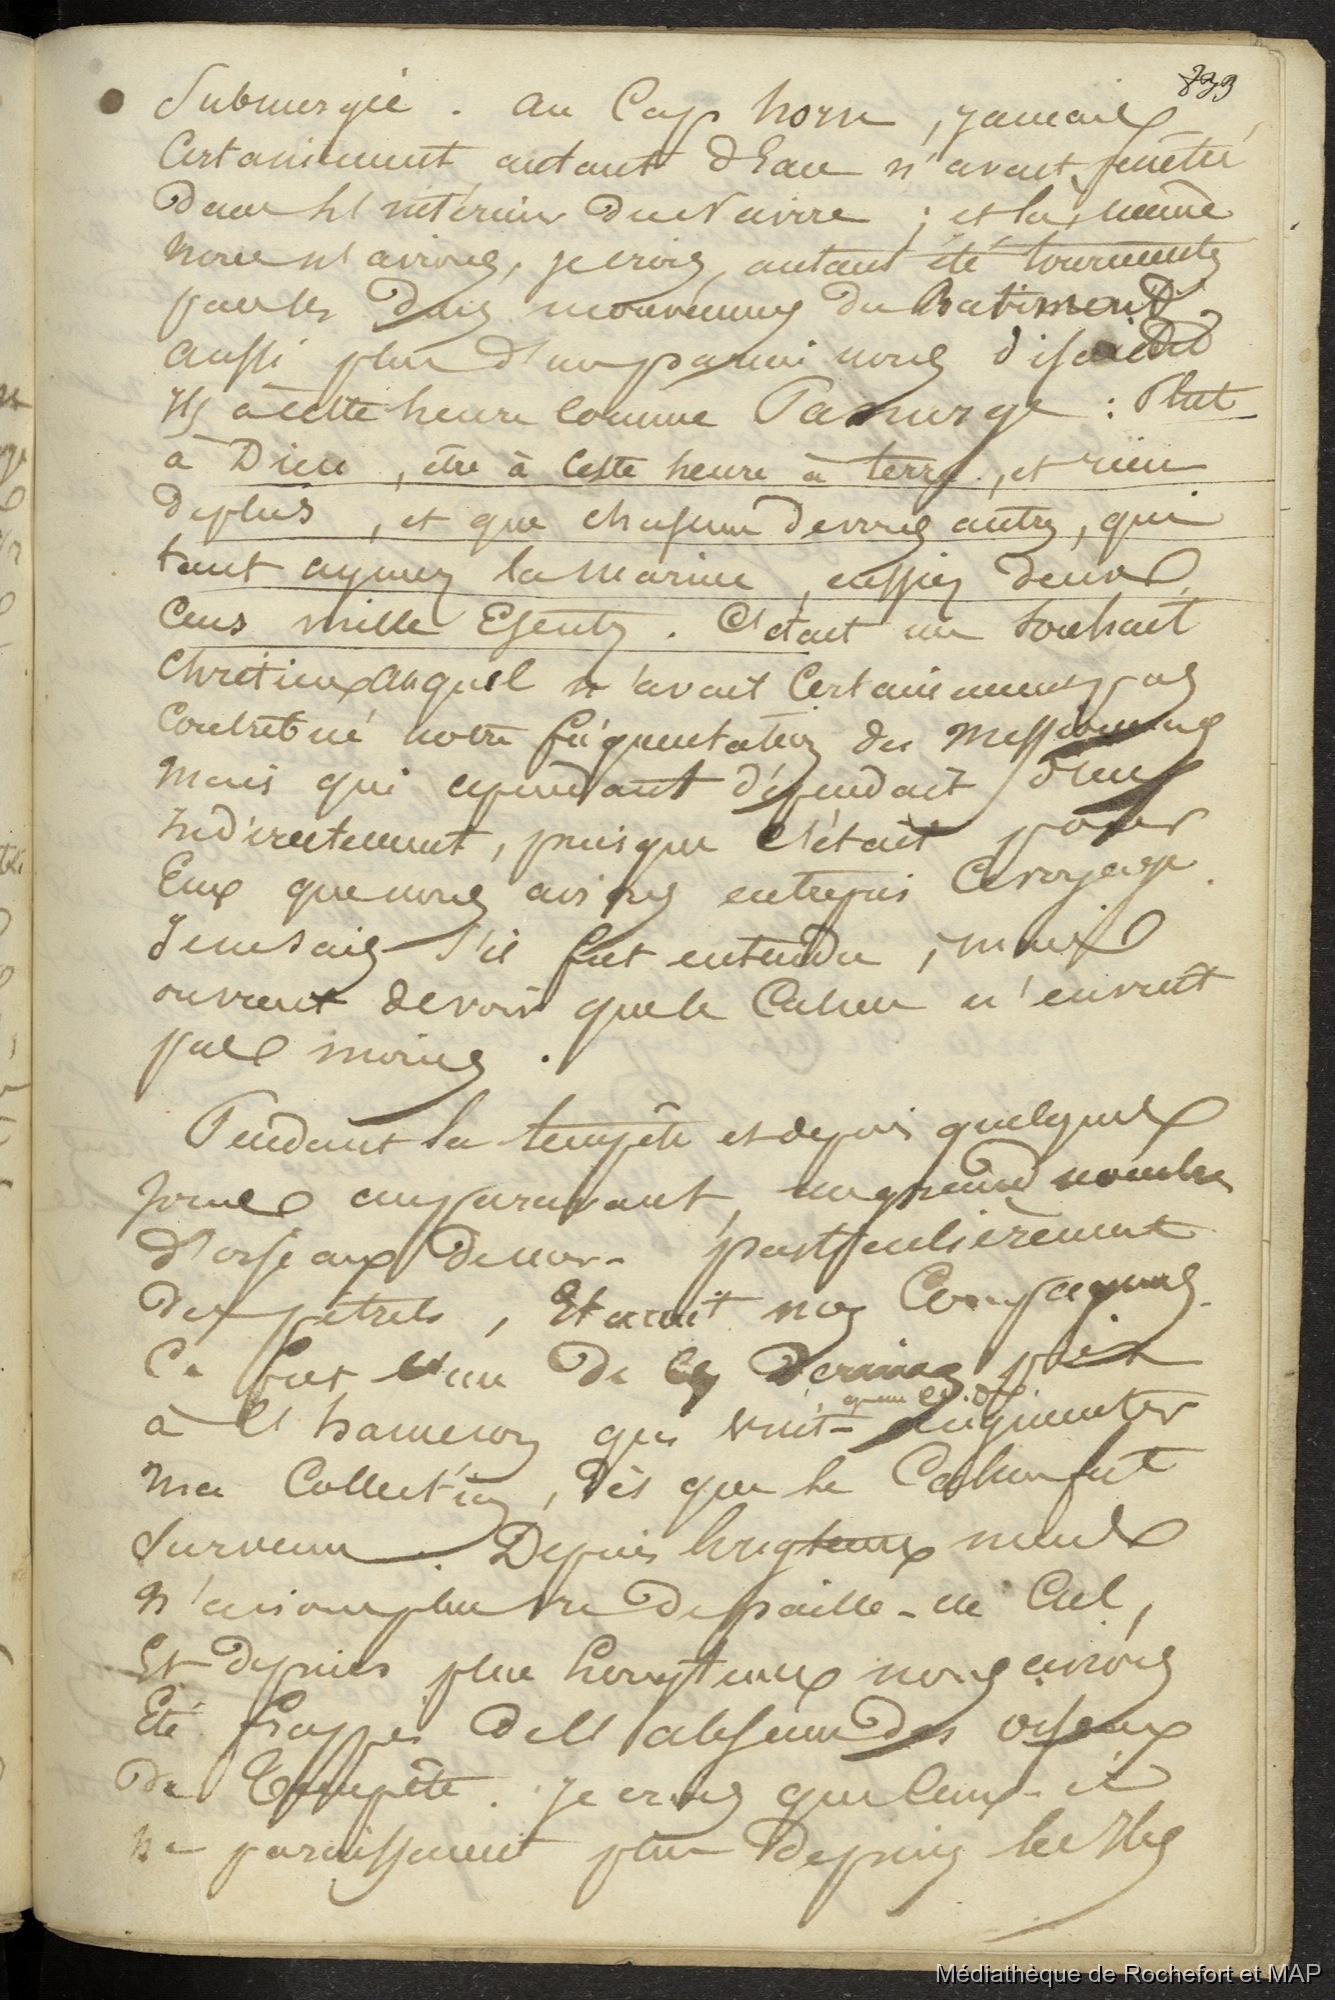 833
Submergée. au Cap horn, jamais
Certainement autant d'Eau n'avait pénétré
Dans l'intérieur du Navire ; et là même
nous n'avions, je crois, autant été tourmentés
par les durs mouvemens du Batiment.
aussi plus d'un parmi nous disait
à cette heure comme Panurge : Plut
à Dieu, être à ceste heure à terre, et rien
de plus, et que chascun de vous autres, qui
tant aymez la marine, eussiez deux
Cens mille Escutz. C'était un souhait
Chrétien auquel n'avait Certainement pas
Contribué notre fréquentation des Missionnaires
mais qui cependant dépendait d'eux
indirectement, puisque C'était pour
Eux que nous avions entrepris Ce voyage.
Je ne sais s'il fut entendu, mais
devoir que le Calme n'en vint
pas moins.
Pendant la tempête et depuis quelques
jours auparavant, un grand nombre
d'oiseaux de mer - particulièrement
des pétrels, Etaient nos Compagnons.
Ce fut l'un de Ces derniers pris
à l'hameçon qui vint augmenter
ma Collection, dès que le Calme fut
Survenu. Depuis longtems nous
n'avions plus vu de paille-en Cul,
Et depuis plus longtems nous avions
Eté frappés de l'absence des oiseaux
de tempête. Je crois que Ceux-ci
ne paraissaient plus depuis les Iles
Médiathèque de Rochefort et MAP